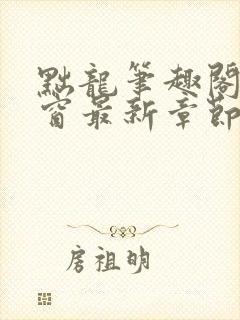 點龍筆趣閣
窗最新章節
房祖明